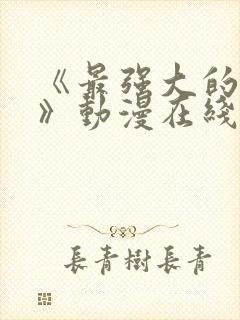 《最强大的
》動漫在綫
長青樹長青